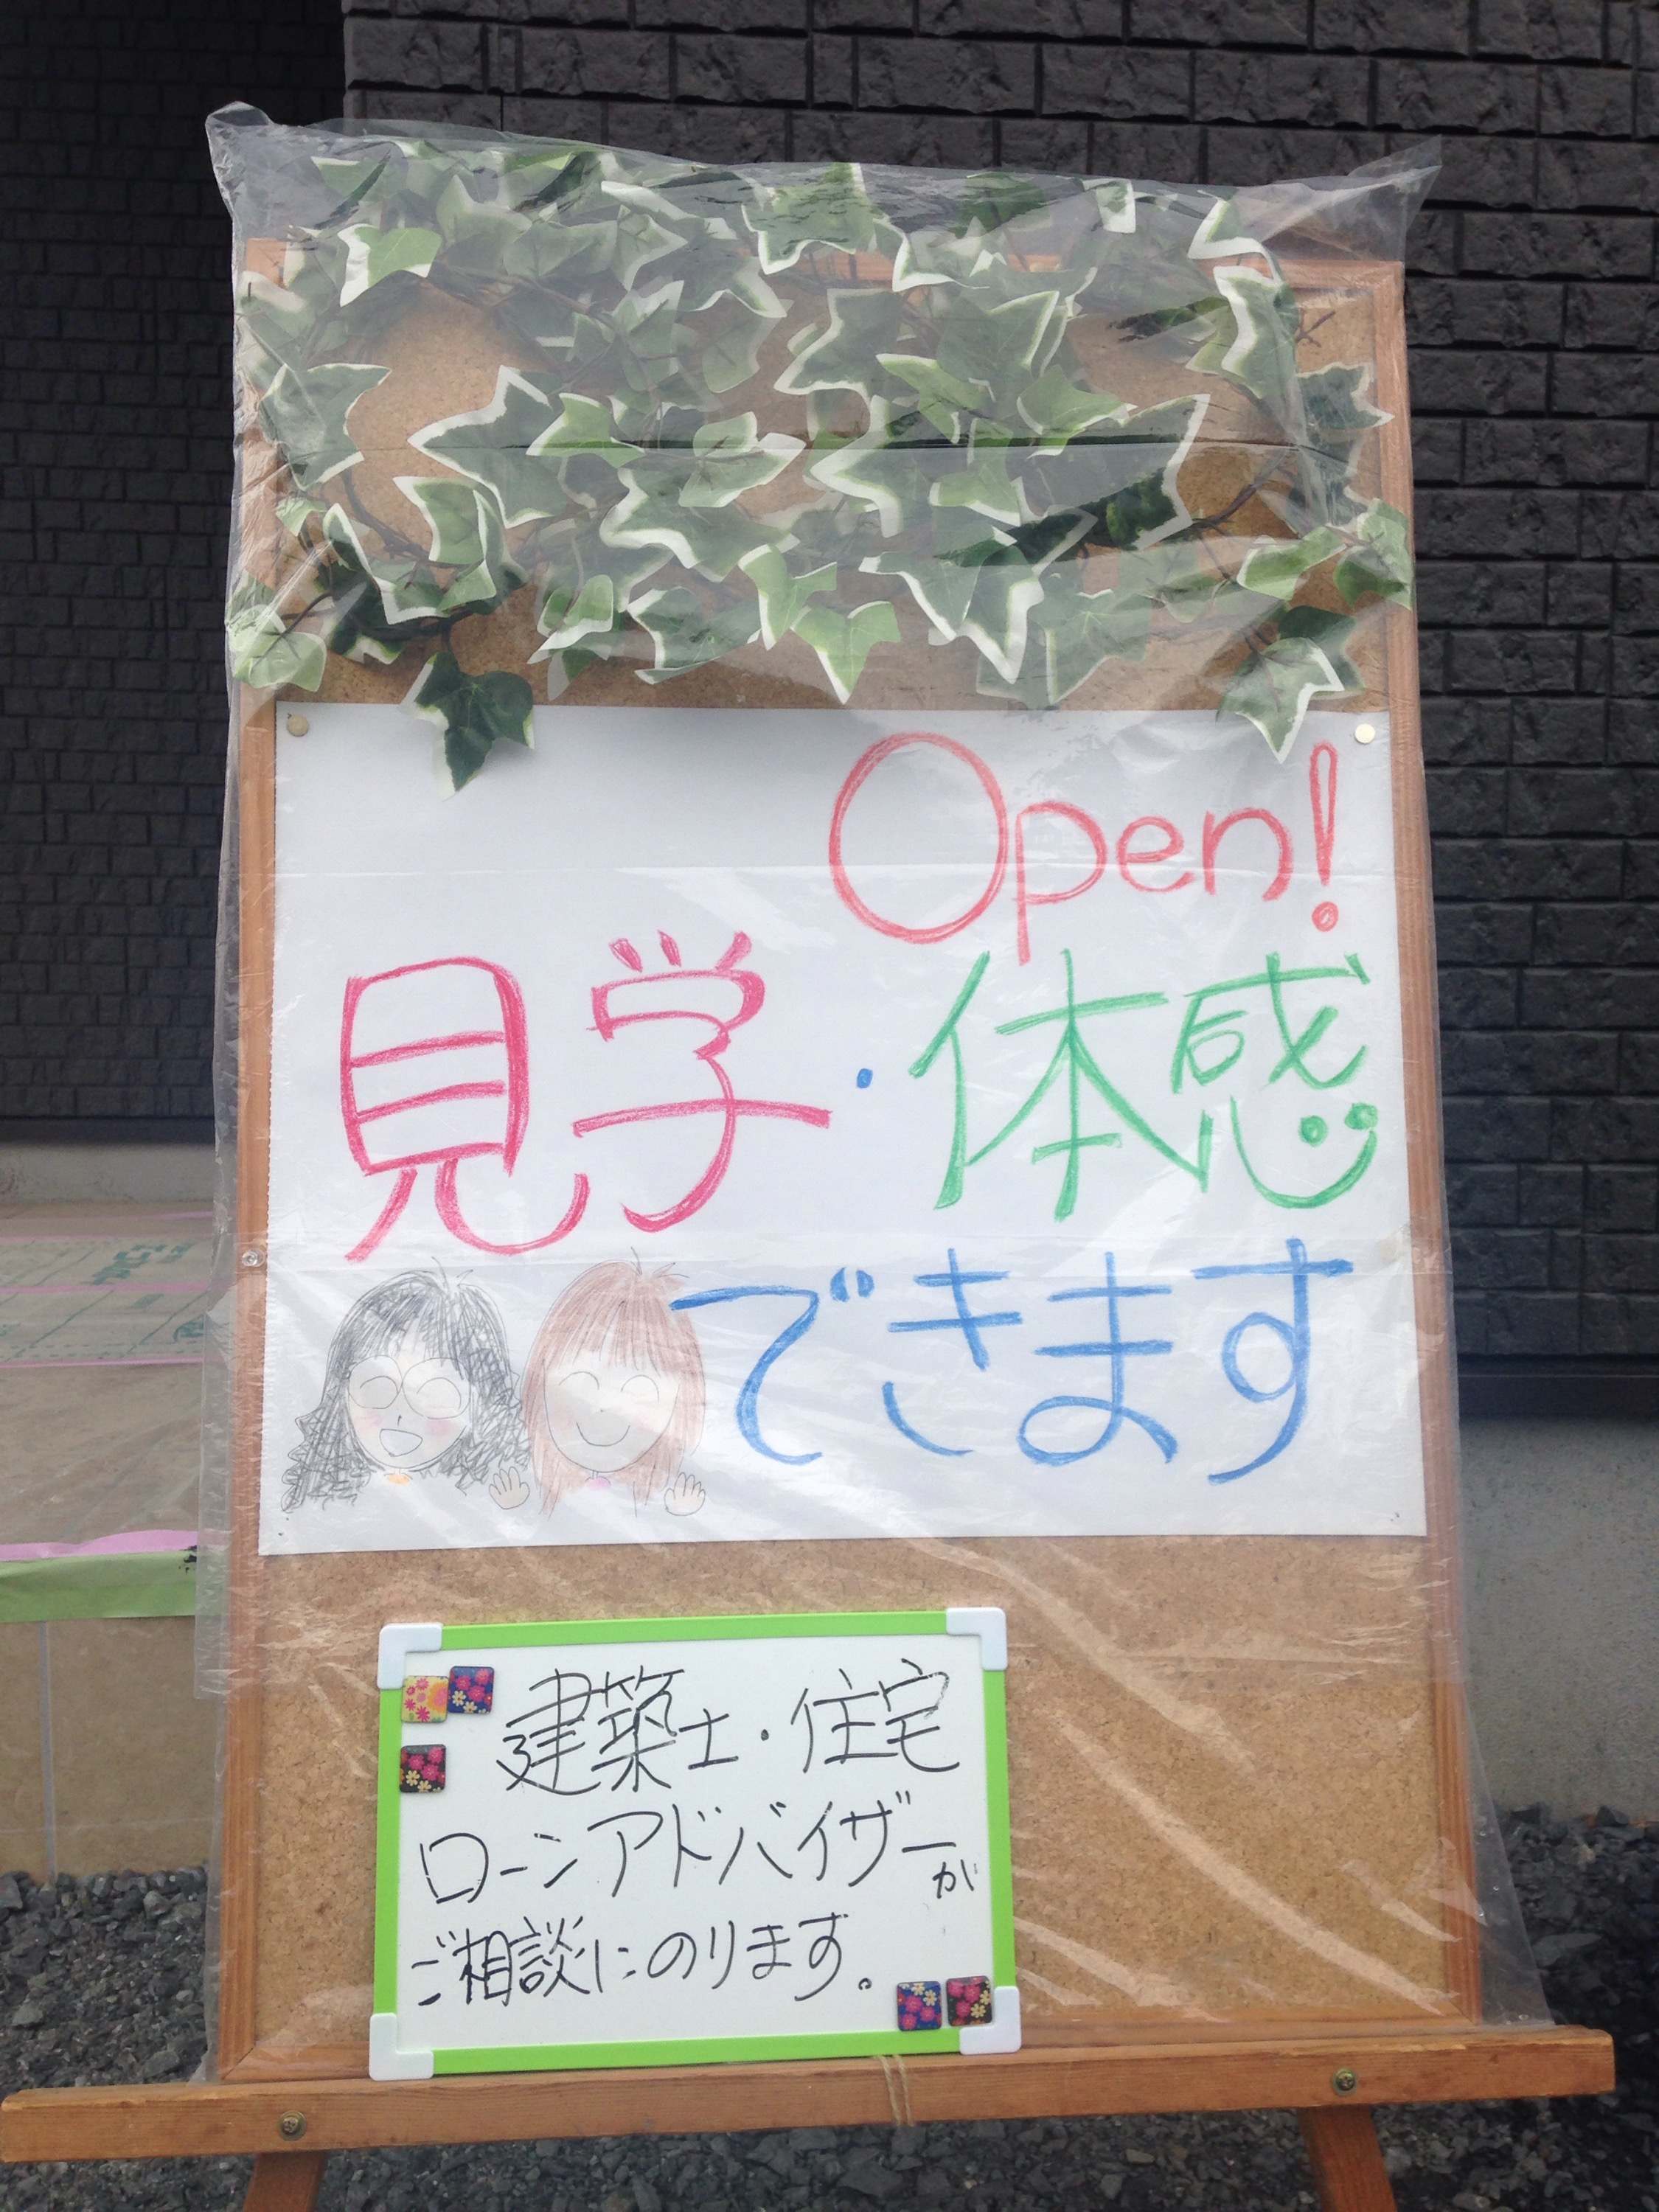 Open!
見学・体感
できます
建築士・住宅
ローンアドバイザーが
ご相談にのります。